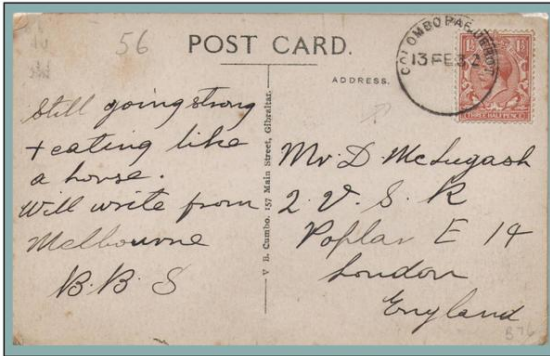 56
POST CARD.
COLOMBO PAQUEBOT
13 FE 32
THREE HALFPENCE
ADDRESS.
Still going strong
+ eating like
a horse.
Will write from
Melbourne
B. B. S
V. B. Cumbo. 157 Main Street, Gibraltar.
Mr. D McLugash
2. V. S. R
Poplar E 14
London
England